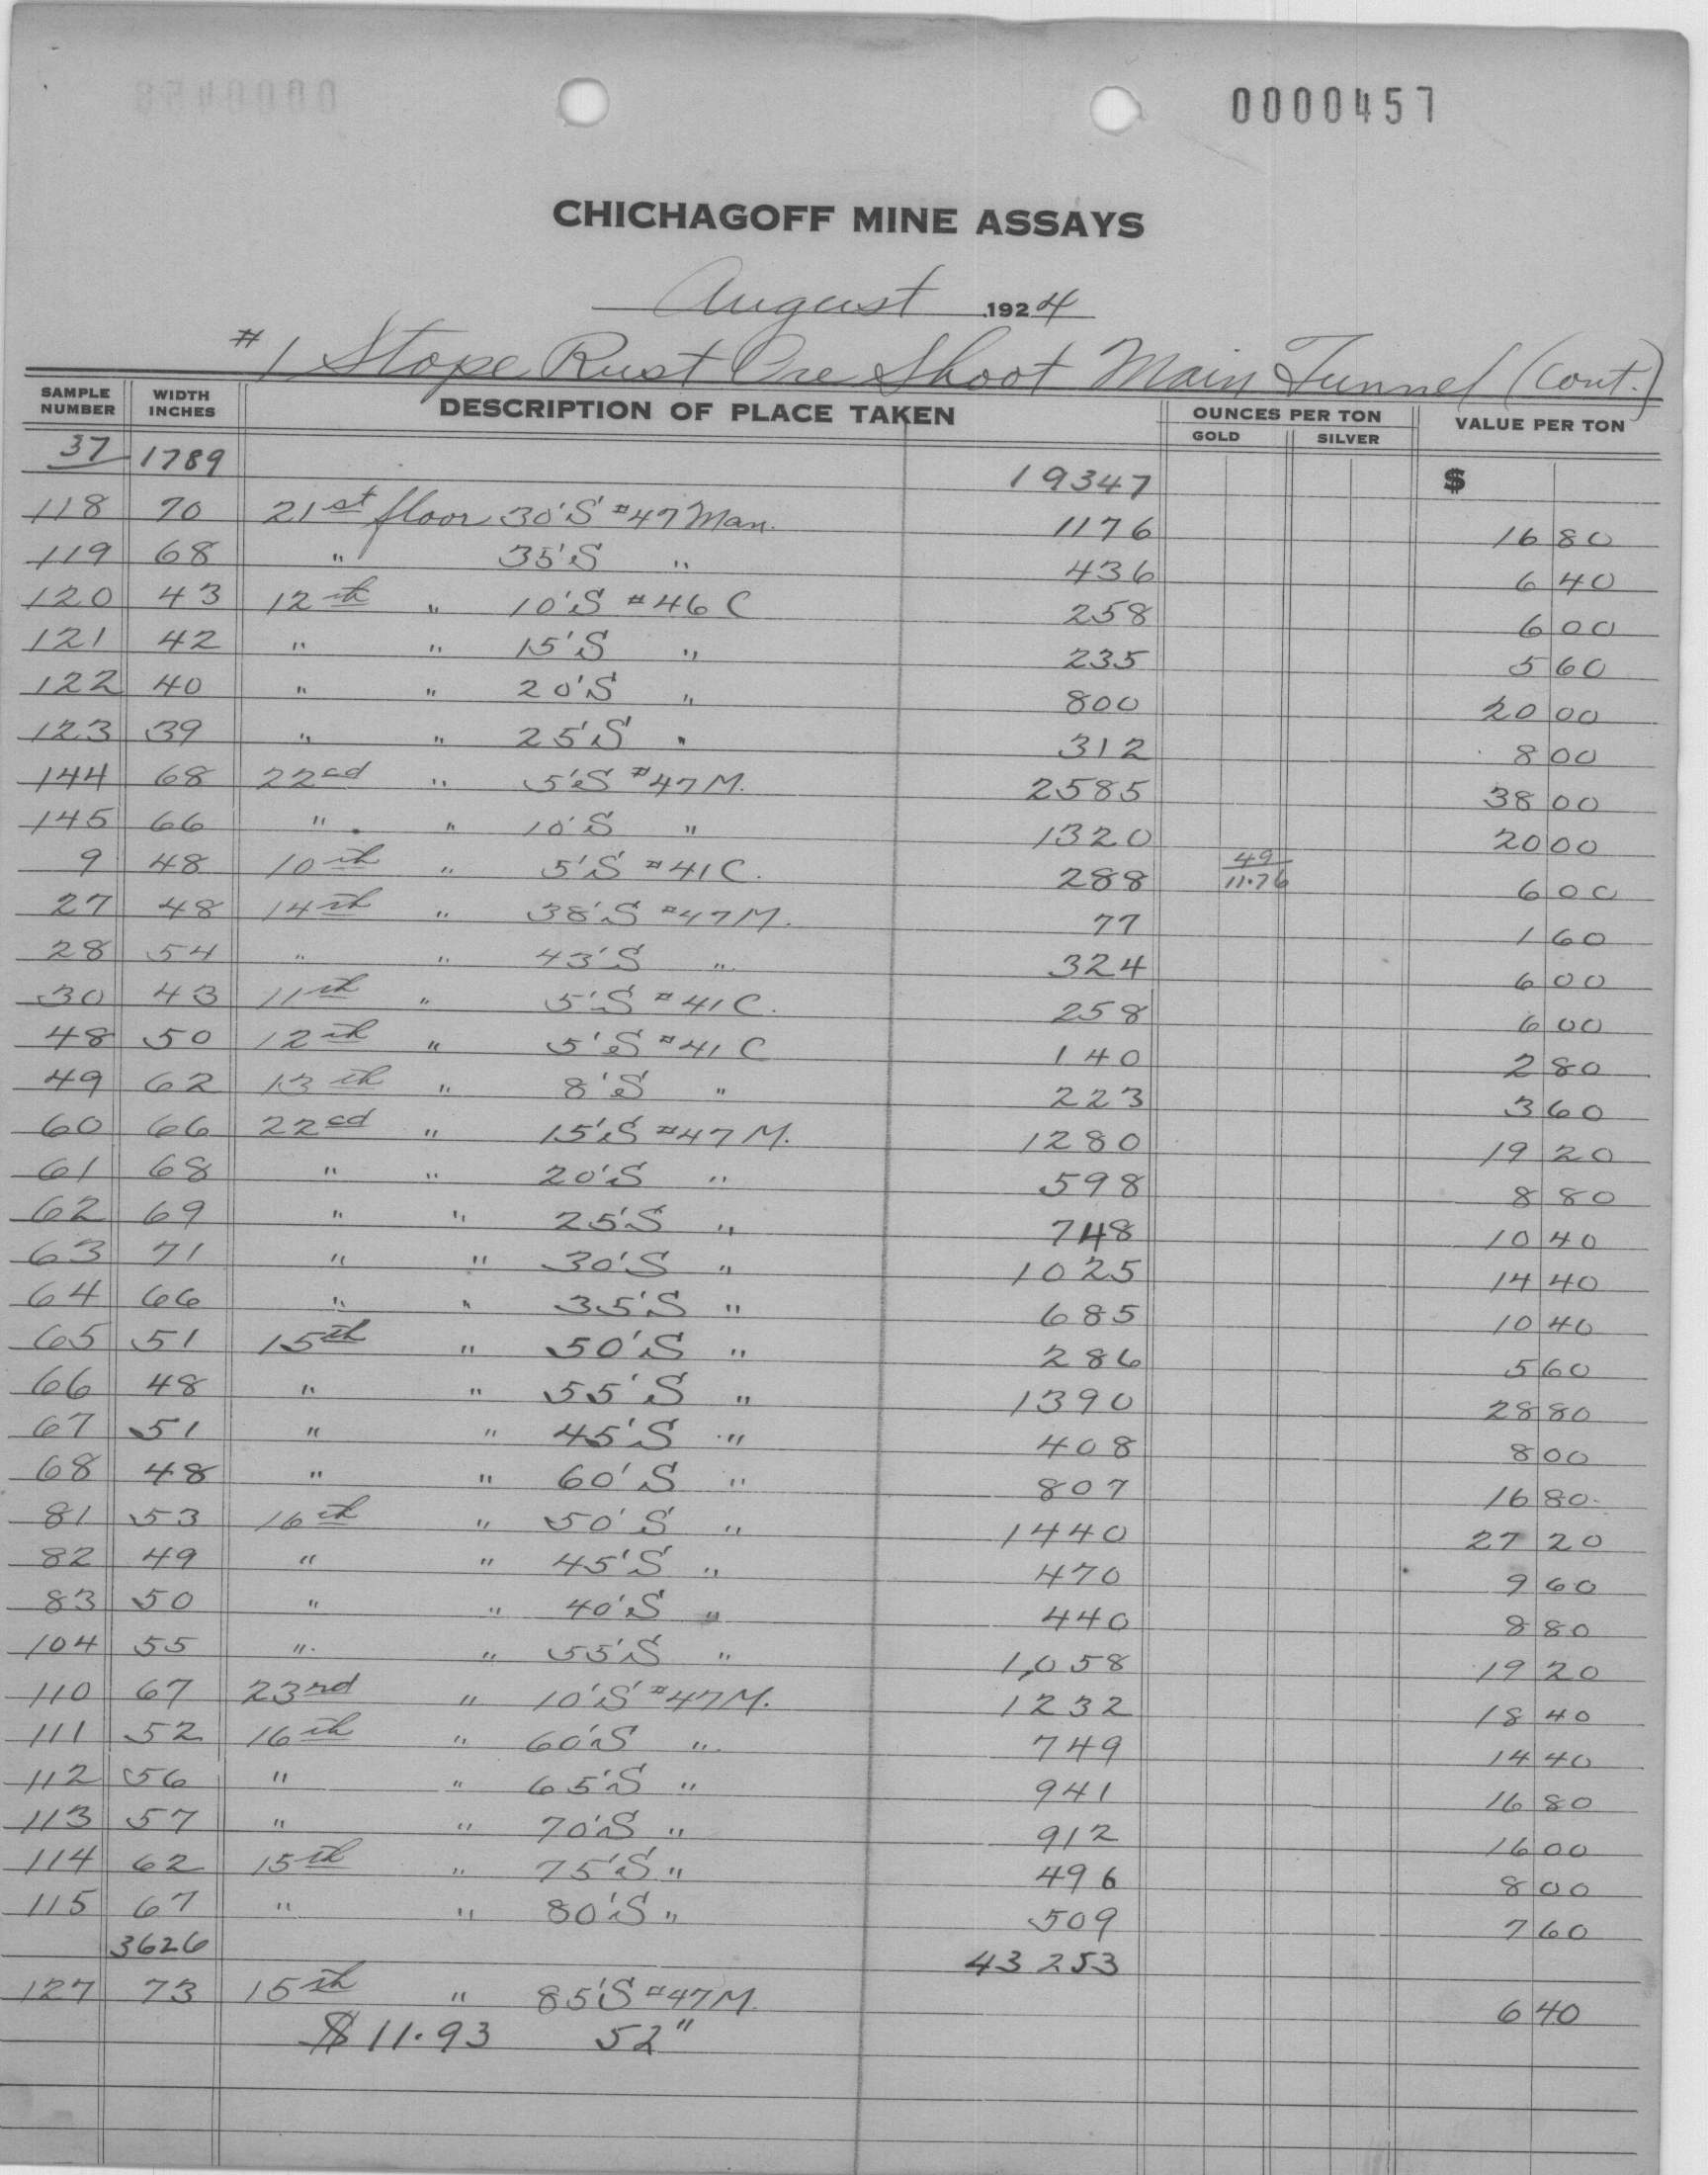 0000457
CHICHAGOFF MINE ASSAYS
August 1924
#1 Stope Rust Ore Shoot Main Tunnel (Cont.)
SAMPLE NUMBER WIDTH INCHES DESCRIPTION OF PLACE TAKEN OUNCES PER TON GOLD SILVER VALUE PER TON
37 1789 19347 $
118 70 21st floor 30'S #47 Man. 1176 16 80
119 68 " 35'S " 436 6 40
120 43 12th " 10'S #46 C 258 6 00
121 42 " " 15'S " 235 5 60
122 40 " " 20'S " 800 20 00
123 39 " " 25'S " 312 8 00
144 68 22cd " 5'S #47 M. 2585 38 00
145 66 " " 10'S " 1320 20 00
9 48 10th " 5'S #41 C. 288 49 / 11.76 6 00
27 48 14th " 38'S #47 M. 77 1 60
28 54 " " 43'S " 324 6 00
30 43 11th " 5'S #41 C. 258 6 00
48 50 12th " 5'S #41 C 140 2 80
49 62 13th " 8'S " 223 3 60
60 66 22cd " 15'S #47 M. 1280 19 20
61 68 " " 20'S " 598 8 80
62 69 " " 25'S " 748 10 40
63 71 " " 30'S " 1025 14 40
64 66 " " 35'S " 685 10 40
65 51 15th " 50'S " 286 5 60
66 48 " " 55'S " 1390 28 80
67 51 " " 45'S " 408 8 00
68 48 " " 60'S " 807 16 80
81 53 16th " 50'S " 1440 27 20
82 49 " " 45'S " 470 9 60
83 50 " " 40'S " 440 8 80
104 55 " " 55'S " 1,058 19 20
110 67 23rd " 10'S #47 M. 1232 18 40
111 52 16th " 60'S " 749 14 40
112 56 " " 65'S " 941 16 80
113 57 " " 70'S " 912 16 00
114 62 15th " 75'S " 496 8 00
115 67 " " 80'S " 509 7 60
3626 43253
127 73 15th " 85'S #47 M. 6 40
$11.93 52"